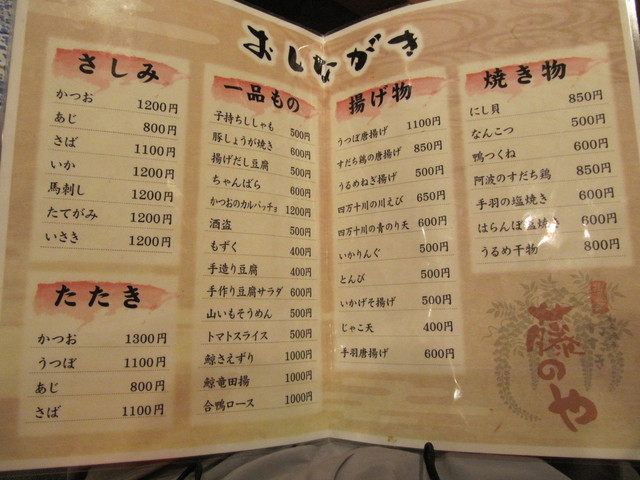 おしながき
さしみ
かつお 1200円
あじ 800円
さば 1100円
いか 1200円
馬刺し 1200円
たてがみ 1200円
いさき 1200円
たたき
かつお 1300円
うつぼ 1100円
あじ 800円
さば 1100円
一品もの
子持ちししゃも 500円
豚しょうが焼き 600円
揚げだし豆腐 500円
ちゃんばら 600円
かつおのカルパッチョ 1200円
酒盗 500円
もずく 400円
手造り豆腐 400円
手作り豆腐サラダ 600円
山いもそうめん 500円
トマトスライス 500円
鯨さえずり 1000円
鯨竜田揚 1000円
合鴨ロース 1000円
揚げ物
うつぼ唐揚げ 1100円
すだち鶏の唐揚げ 850円
うるめねぎ揚げ 500円
四万十川の川えび 650円
四万十川の青のり天 600円
いかりんぐ 500円
とんび 500円
いかげそ揚げ 500円
じゃこ天 400円
手羽唐揚げ 600円
焼き物
にし貝 850円
なんこつ 500円
鴨つくね 600円
阿波のすだち鶏 850円
手羽の塩焼き 600円
はらんぼ塩焼き 600円
うるめ干物 800円
藤のや